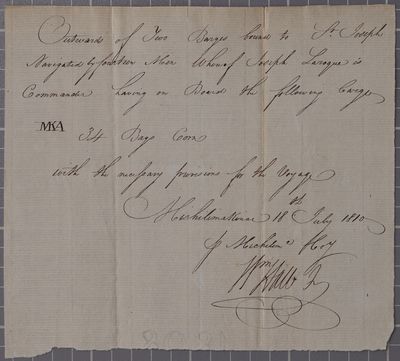 Outwards of Two Barges bound to St. Joseph
Navigated by fourteen Men Whereof Joseph Laroque is
Commander having on Board the following Cargo
MKA 34 Bags Corn
with the necessary provisions for the Voyage
Michilimakinac 18th July 1810
p Michilim
Wm